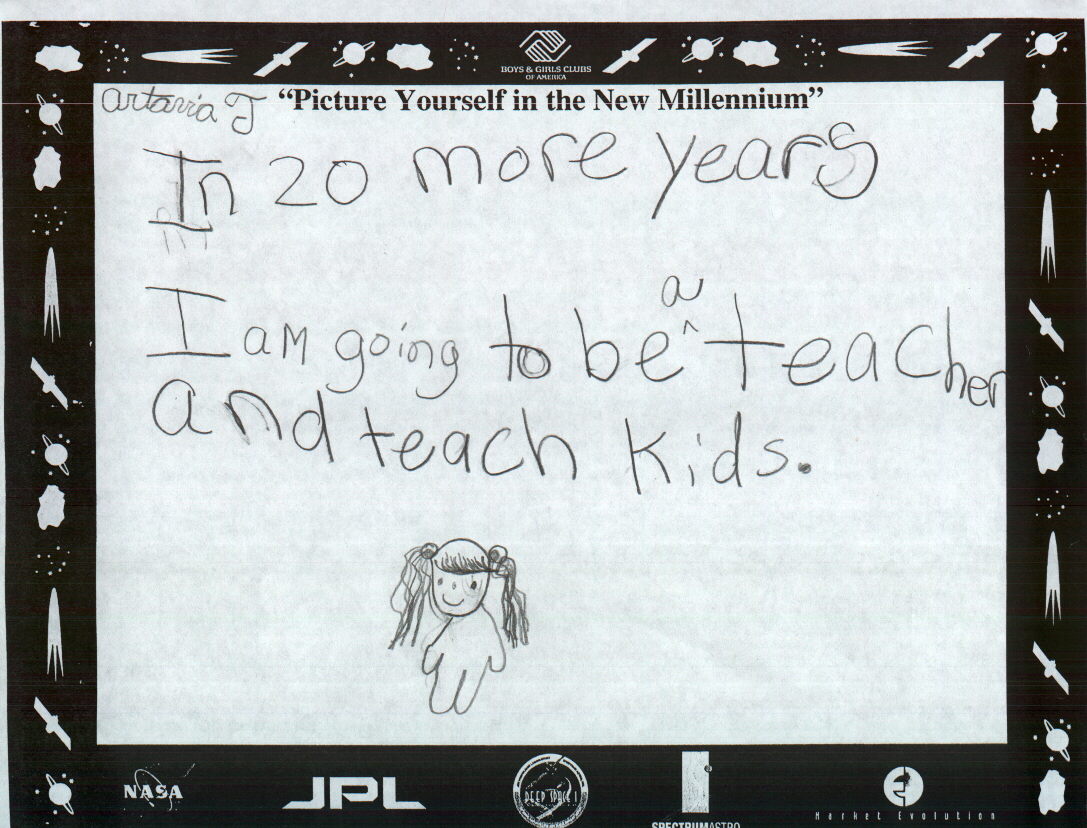 BOYS & GIRLS CLUBS
OF AMERICA
artavia J "Picture Yourself in the New Millennium"
In 20 more years
I am going to be a teacher
and teach kids.
NASA JPL DEEP SPACE 1 SPECTRUMASTRO Market Evolution